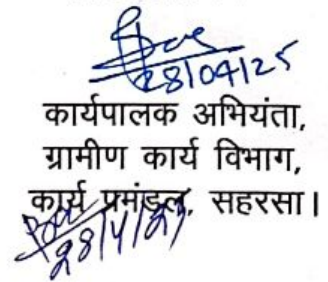 28/04/25
कार्यपालक अभियंता,
ग्रामीण कार्य विभाग,
कार्य प्रमंडल, सहरसा।
28/4/25